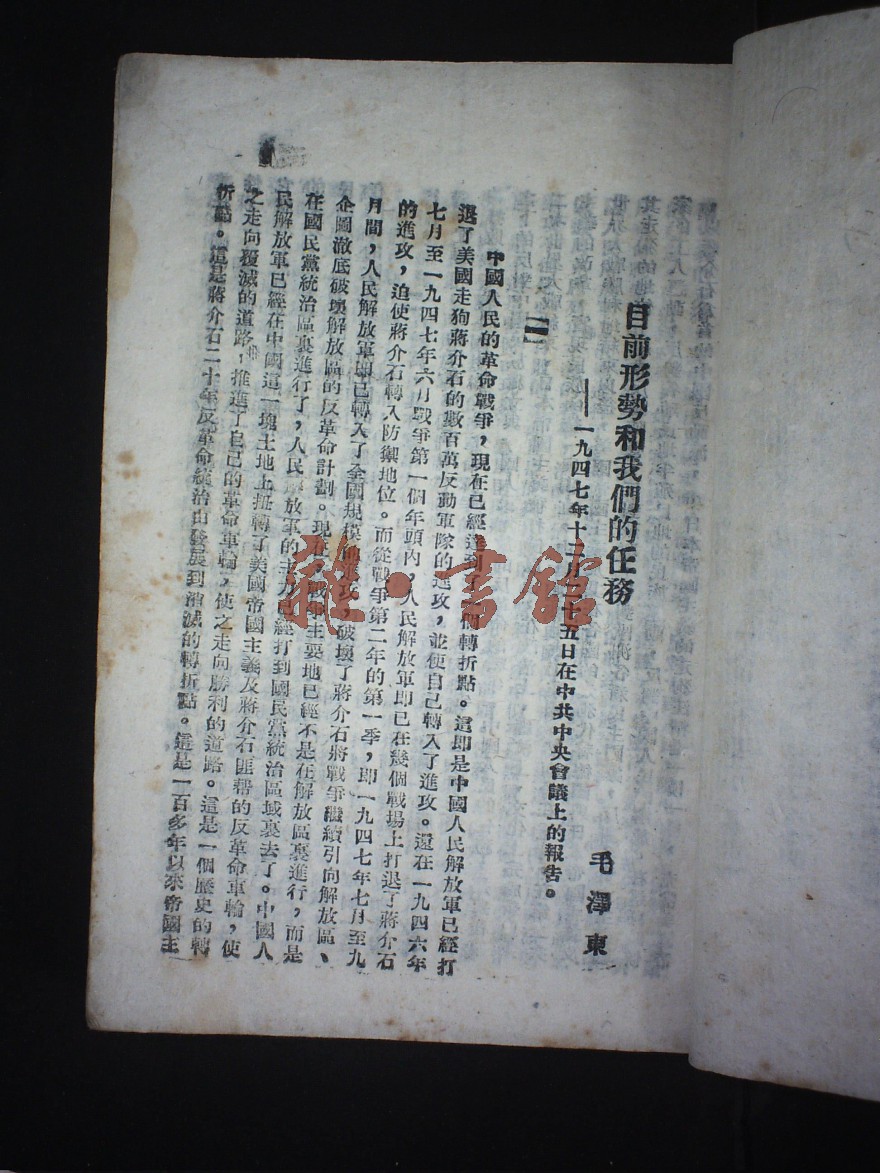 目前形勢和我們的任務
——一九四七年十二月二十五日在中共中央會議上的報告。
毛澤東
【一】
中國人民的革命戰爭，現在已經達到了一個轉折點。這即是中國人民解放軍已經打
退了美國走狗蔣介石的數百萬反動軍隊的進攻，並使自己轉入了進攻。還在一九四六年
七月至一九四七年六月戰爭第一個年頭內，人民解放軍即已在幾個戰場上打退了蔣介石
的進攻，迫使蔣介石轉入防禦地位。而從戰爭第二年的第一季，即一九四七年七月至九
月間，人民解放軍即已轉入了全國規模的進攻，破壞了蔣介石將戰爭繼續引向解放區、
企圖澈底破壞解放區的反革命計劃。現在，戰爭主要地已經不是在解放區裏進行，而是
在國民黨統治區裏進行了，人民解放軍的主力已經打到國民黨統治區域裏去了。中國人
民解放軍已經在中國這一塊土地上扭轉了美國帝國主義及蔣介石匪幫的反革命車輪，使
之走向覆滅的道路，推進了自己的革命車輪，使之走向勝利的道路。這是一個歷史的轉
折點。這是蔣介石二十年反革命統治由發展到消滅的轉折點。這是一百多年以來帝國主
雜·書館